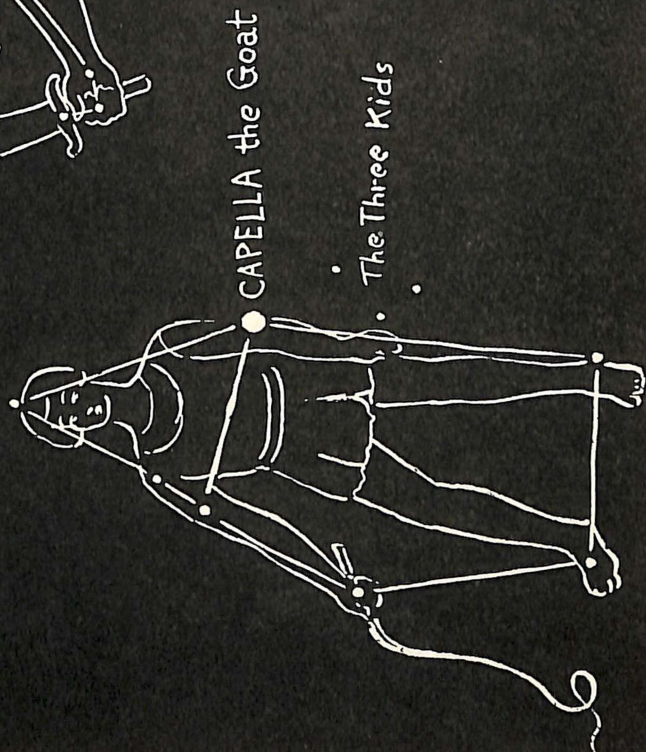 CAPELLA the Goat
The Three Kids